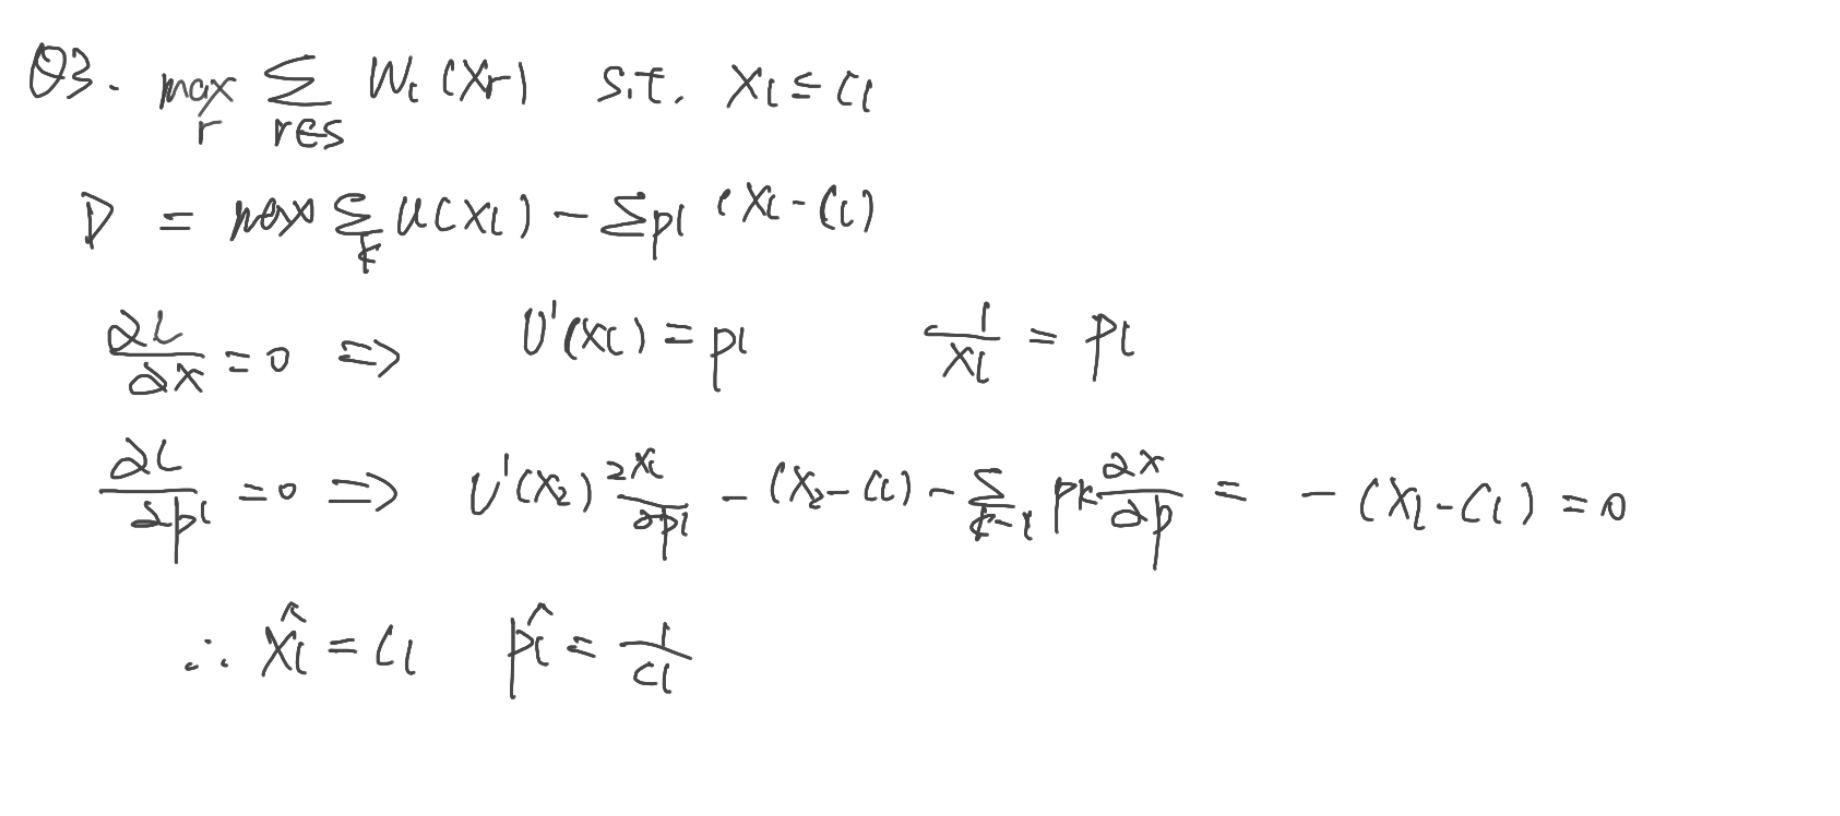 Q3. max_r Σ_{res} W_t (X_r) s.t. X_l ≤ C_l
D = max Σ_k U(X_l) - Σ p_l (X_l - C_l)
∂L/∂X = 0 ⇒ U'(X_l) = p_l 1/X_l = p_l
∂L/∂p_l = 0 ⇒ U'(X_2) ∂X_l/∂p_l - (X_2 - C_l) - Σ p_k ∂X/∂p = - (X_l - C_l) = 0
∴ X̂_l = C_l p̂_l = 1/C_l